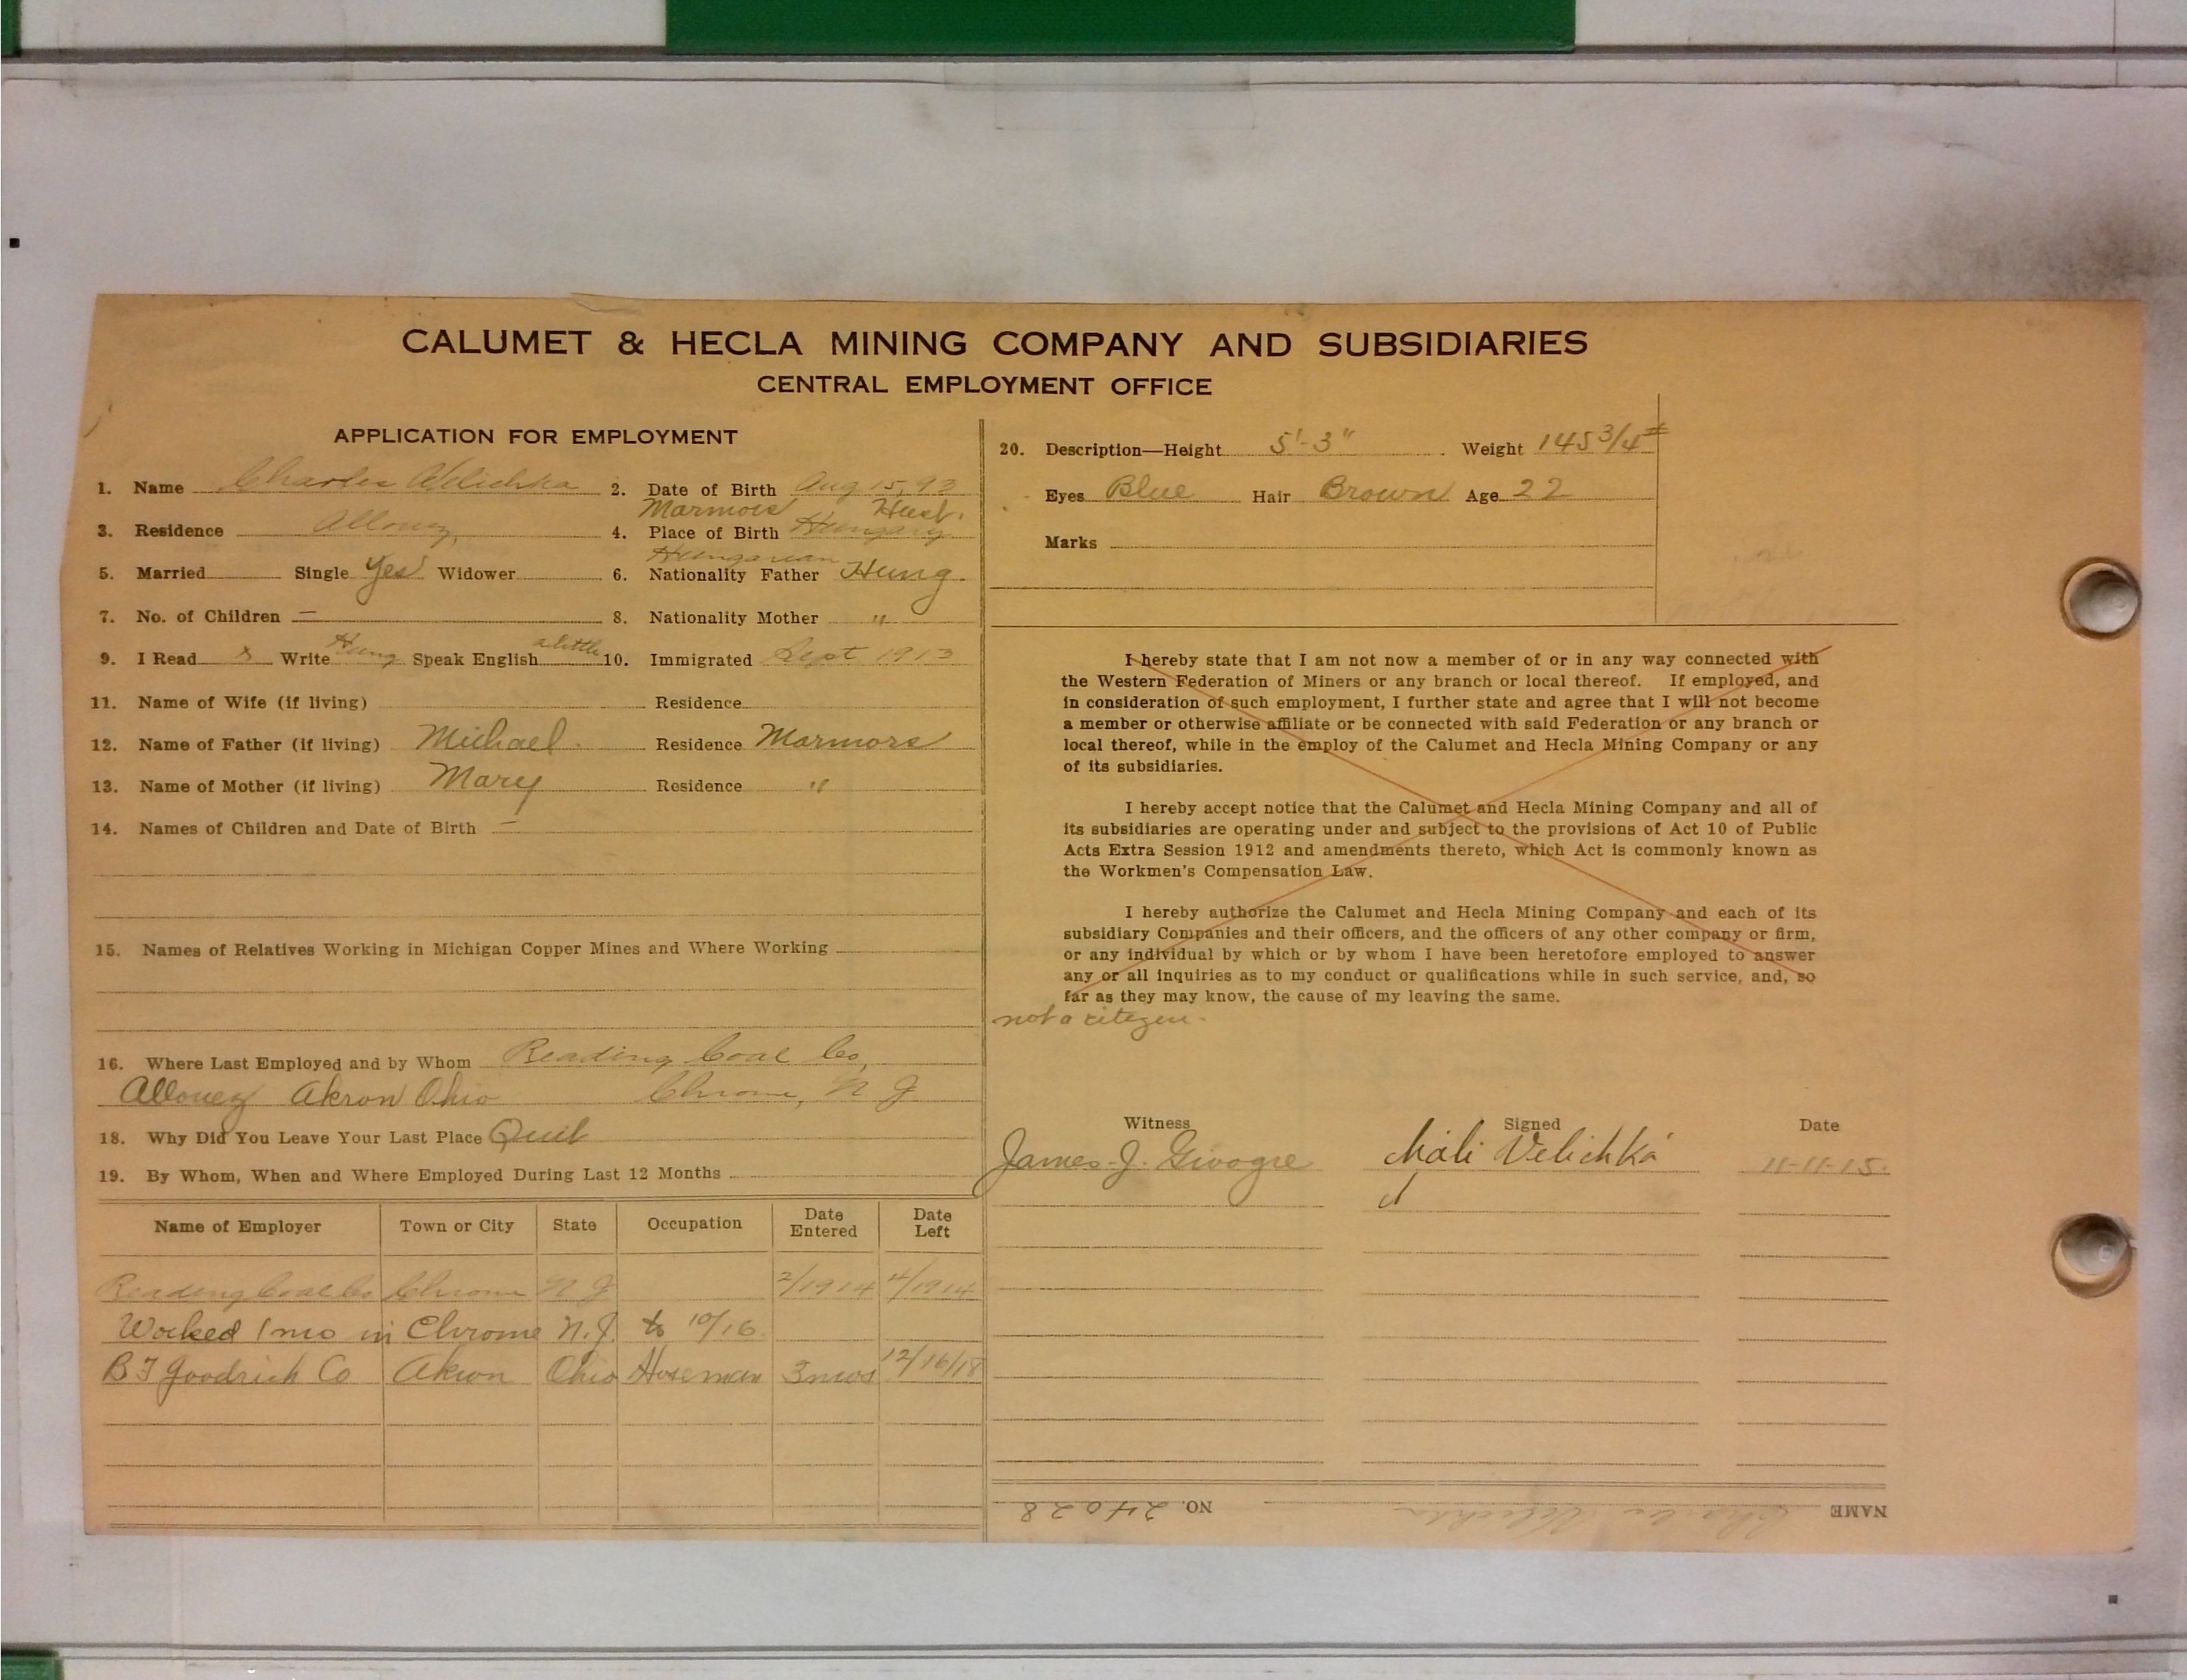 CALUMET & HECLA MINING COMPANY AND SUBSIDIARIES
CENTRAL EMPLOYMENT OFFICE
APPLICATION FOR EMPLOYMENT
1. Name Charles Velichka 2. Date of Birth Aug 15, 93
Marmors
3. Residence Allouez 4. Place of Birth Hungary
Hungarian
5. Married Single Yes Widower 6. Nationality Father Hung.
7. No. of Children — 8. Nationality Mother "
9. I Read & Write Hung Speak English a little 10. Immigrated Sept 1913
11. Name of Wife (if living) Residence
12. Name of Father (if living) Michael. Residence Marmors
13. Name of Mother (if living) Mary Residence "
14. Names of Children and Date of Birth —
15. Names of Relatives Working in Michigan Copper Mines and Where Working
16. Where Last Employed and by Whom Reading Coal Co,
Allouez Akron Ohio Chrome, N J
18. Why Did You Leave Your Last Place Quit
19. By Whom, When and Where Employed During Last 12 Months
Name of Employer Town or City State Occupation Date Entered Date Left
Reading Coal Co Chrome N J 2/1914 4/1914
Worked 1 mo in Chrome N.J. to 10/16
B F Goodrich Co Akron Ohio Hoseman 3 mos 12/16/18
20. Description—Height 5'-3" Weight 145 3/4 #
Eyes Blue Hair Brown Age 22
Marks
I hereby state that I am not now a member of or in any way connected with
the Western Federation of Miners or any branch or local thereof. If employed, and
in consideration of such employment, I further state and agree that I will not become
a member or otherwise affiliate or be connected with said Federation or any branch or
local thereof, while in the employ of the Calumet and Hecla Mining Company or any
of its subsidiaries.
I hereby accept notice that the Calumet and Hecla Mining Company and all of
its subsidiaries are operating under and subject to the provisions of Act 10 of Public
Acts Extra Session 1912 and amendments thereto, which Act is commonly known as
the Workmen's Compensation Law.
I hereby authorize the Calumet and Hecla Mining Company and each of its
subsidiary Companies and their officers, and the officers of any other company or firm,
or any individual by which or by whom I have been heretofore employed to answer
any or all inquiries as to my conduct or qualifications while in such service, and, so
far as they may know, the cause of my leaving the same.
not a citizen.
Witness Signed Date
James J. Velichka 11-11-15.
NAME Charles Velichka NO. 24028